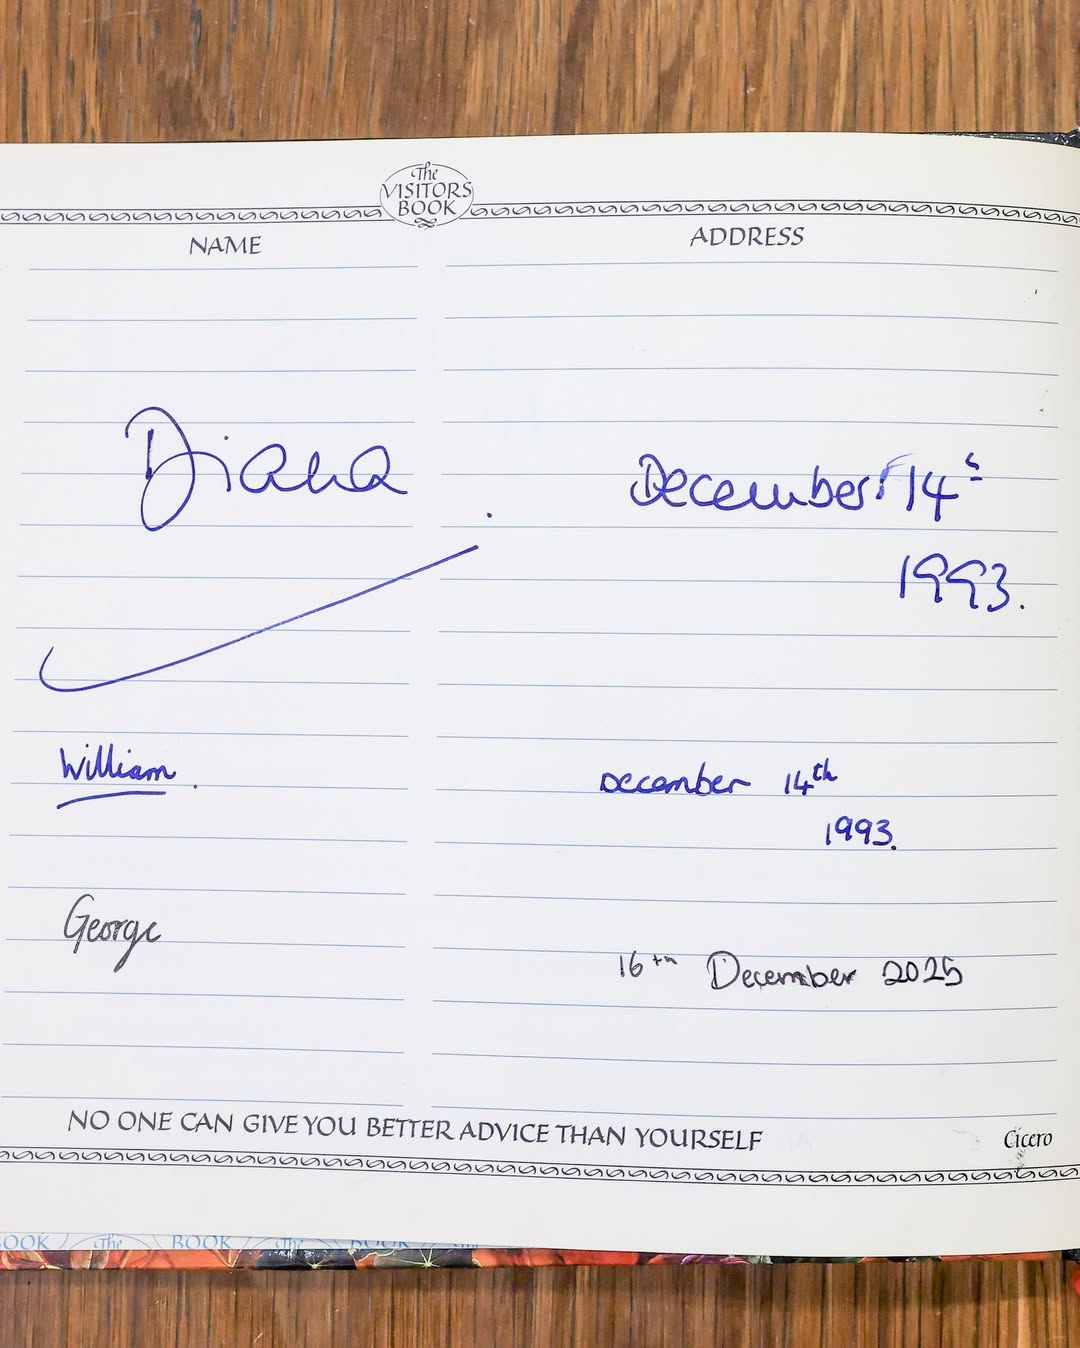 The
VISITORS
BOOK
NAME ADDRESS
Diana December 14th
1993.
William. December 14th
1993.
George
16th December 2025
NO ONE CAN GIVE YOU BETTER ADVICE THAN YOURSELF Cicero
BOOK The BOOK The BOOK The